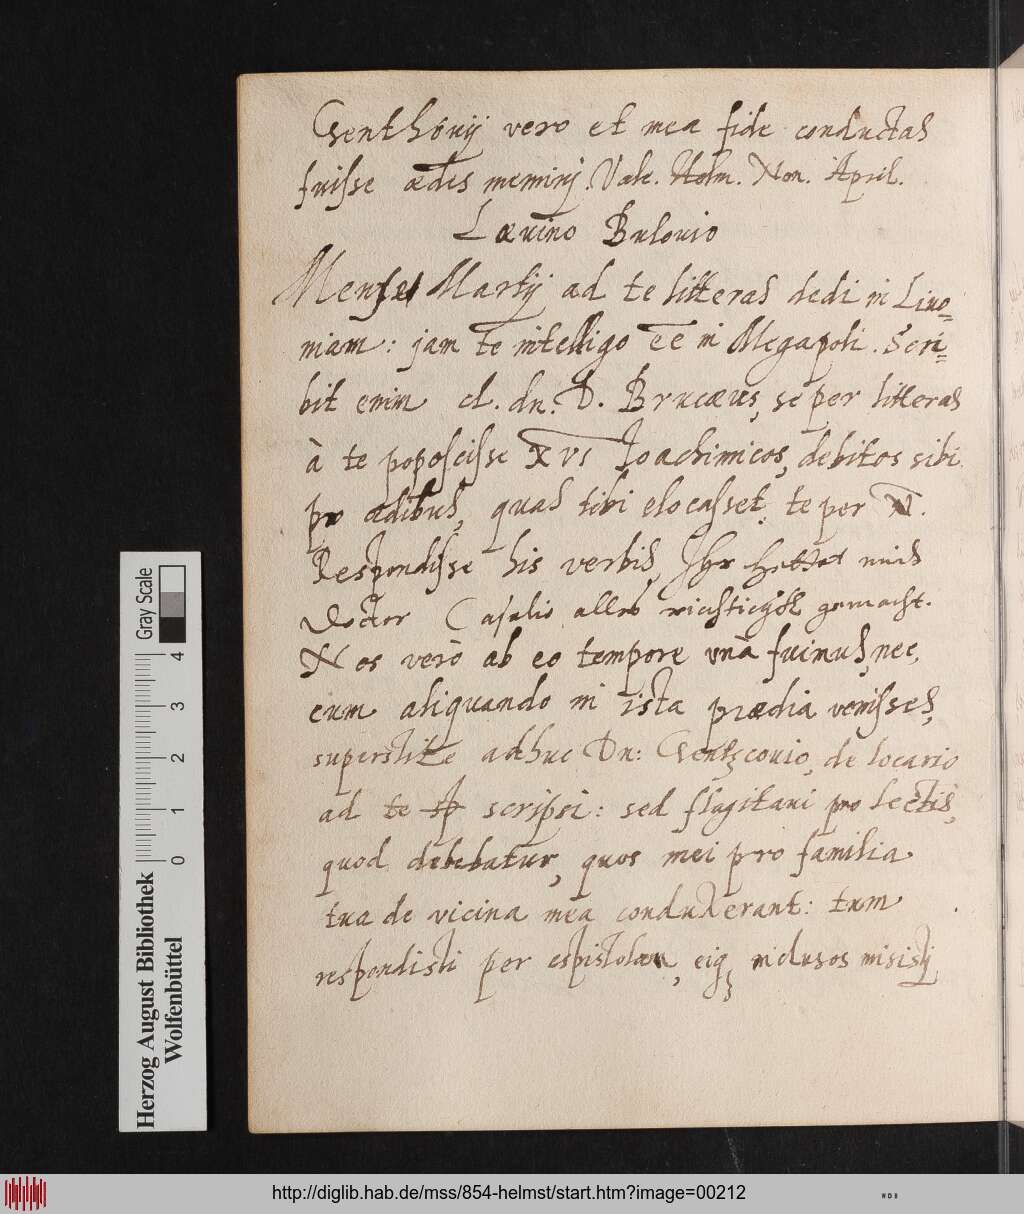 Genthówij vero et mea fide conductas
fuisse ædes meminj. Vale. Holm. Non. April.
Lævino Bulovio
Mense Martij ad te litteras dedi in Livo=
niam: jam te intelligo eē in Megapoli. Scri=
bit enim cl. dn. D. Brucæus, se per litteras
à te poposcisse XVI Joachimicos, debitos sibi
pro ædibus, quas tibi elocasset, te per N.
Respondisse his verbis, Ihr hettet mitt
Doctor Caselio alles richtigk gemacht.
Nos verò ab eo tempore unà fuimus, nec,
cum aliquando in ista prædia venisses,
superstite adhuc Dn: Gentzcouio, de locario
ad te scripsi: sed flagitavi pro lectis,
quod debebatur, quos mei pro familia
tua de vicina mea conduxerant: tum
respondisti per epistolam, eiq, inclusos misistj
Gray Scale
4
3
2
1
0
Herzog August Bibliothek
Wolfenbüttel
http://diglib.hab.de/mss/854-helmst/start.htm?image=00212